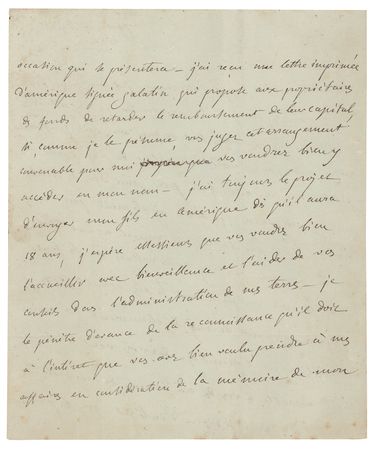 occasion qui se présentera – j'ai reçu une lettre imprimée
d'amérique signée galatin qui propose aux propriétaires
de fonds de retarder le remboursement de leur capital,
si, comme je le présume, vous jugez cet arrangement
convenable pour moi vous voudrez bien y
accéder en mon nom – j'ai toujours le projet
d'envoyer mon fils en amérique dès qu'il aura
18 ans, j'espère Messieurs que vous voudrez bien
l'accueillir avec bienveillance et l'aider de vos
conseils dans l'administration de mes terres – je
le pénètre d'avance de la reconnaissance qu'il doit
à l'intérêt que vous avez bien voulu prendre à mes
affaires en considération de la mémoire de mon